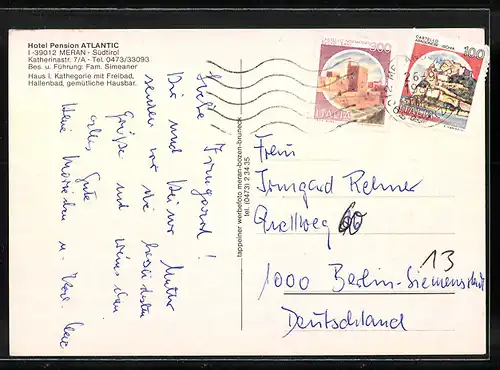 Hotel Pension ATLANTIC
I-39012 MERAN - Südtirol
Katherinastr. 7/A - Tel. 0473/33093
Bes. u. Führung: Fam. Simeaner
Haus I. Kathegorie mit Freibad,
Hallenbad, gemütliche Hausbar.
Liebe Irmgard!
Dir und Deiner Mutter
senden wir die herzlichsten
Grüße und wünschen
alles Gute
tappeiner werbefoto meran-bozen-bruneck
tel. (0473) 2 34 35
300
ITALIA
CASTELLO
ARAGONESE - ISCHIA
100
ITALIA
Frau
Irmgard
60
13
1000 Berlin-Siemensstadt
Deutschland